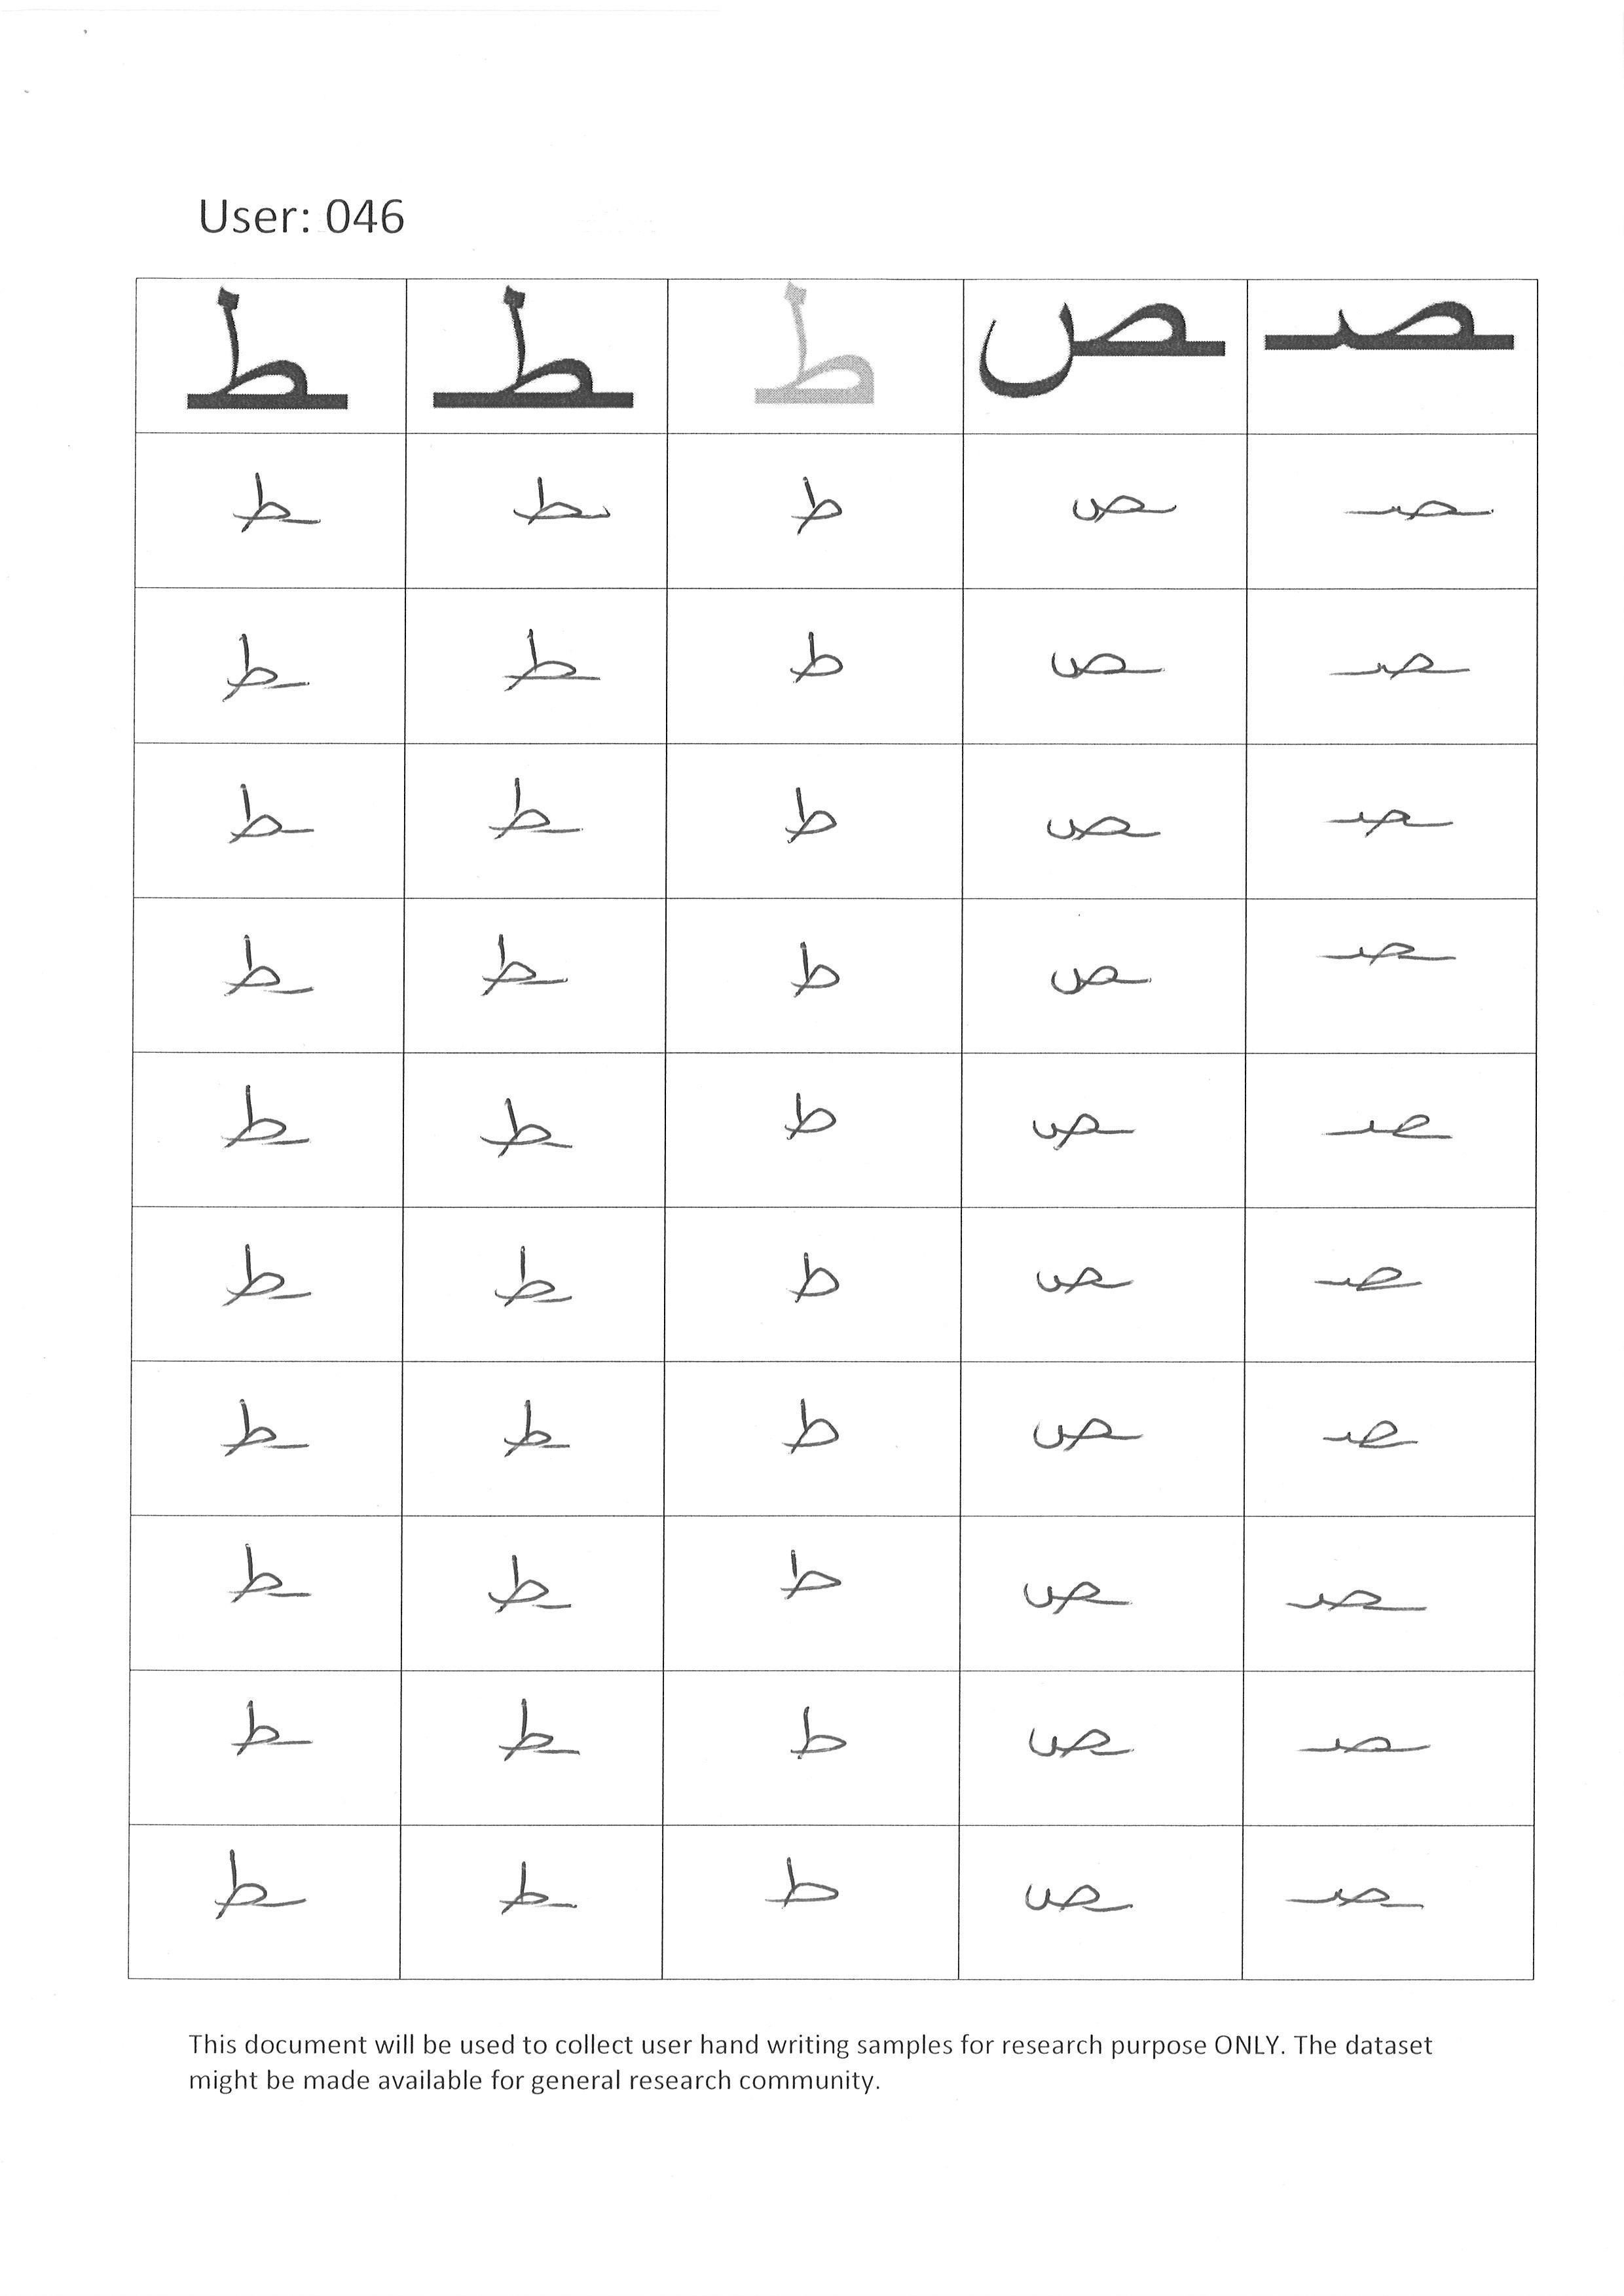 User: 046
ـط ـطـ ط ـص ـصـ
ـط ـطـ ط ـص ـصـ
ـط ـطـ ط ـص ـصـ
ـط ـطـ ط ـص ـصـ
ـط ـطـ ط ـص ـصـ
ـط ـطـ ط ـص ـصـ
ـط ـطـ ط ـص ـصـ
ـط ـطـ ط ـص ـصـ
ـط ـطـ ط ـص ـصـ
ـط ـطـ ط ـص ـصـ
ـط ـطـ ط ـص ـصـ
This document will be used to collect user hand writing samples for research purpose ONLY. The dataset
might be made available for general research community.